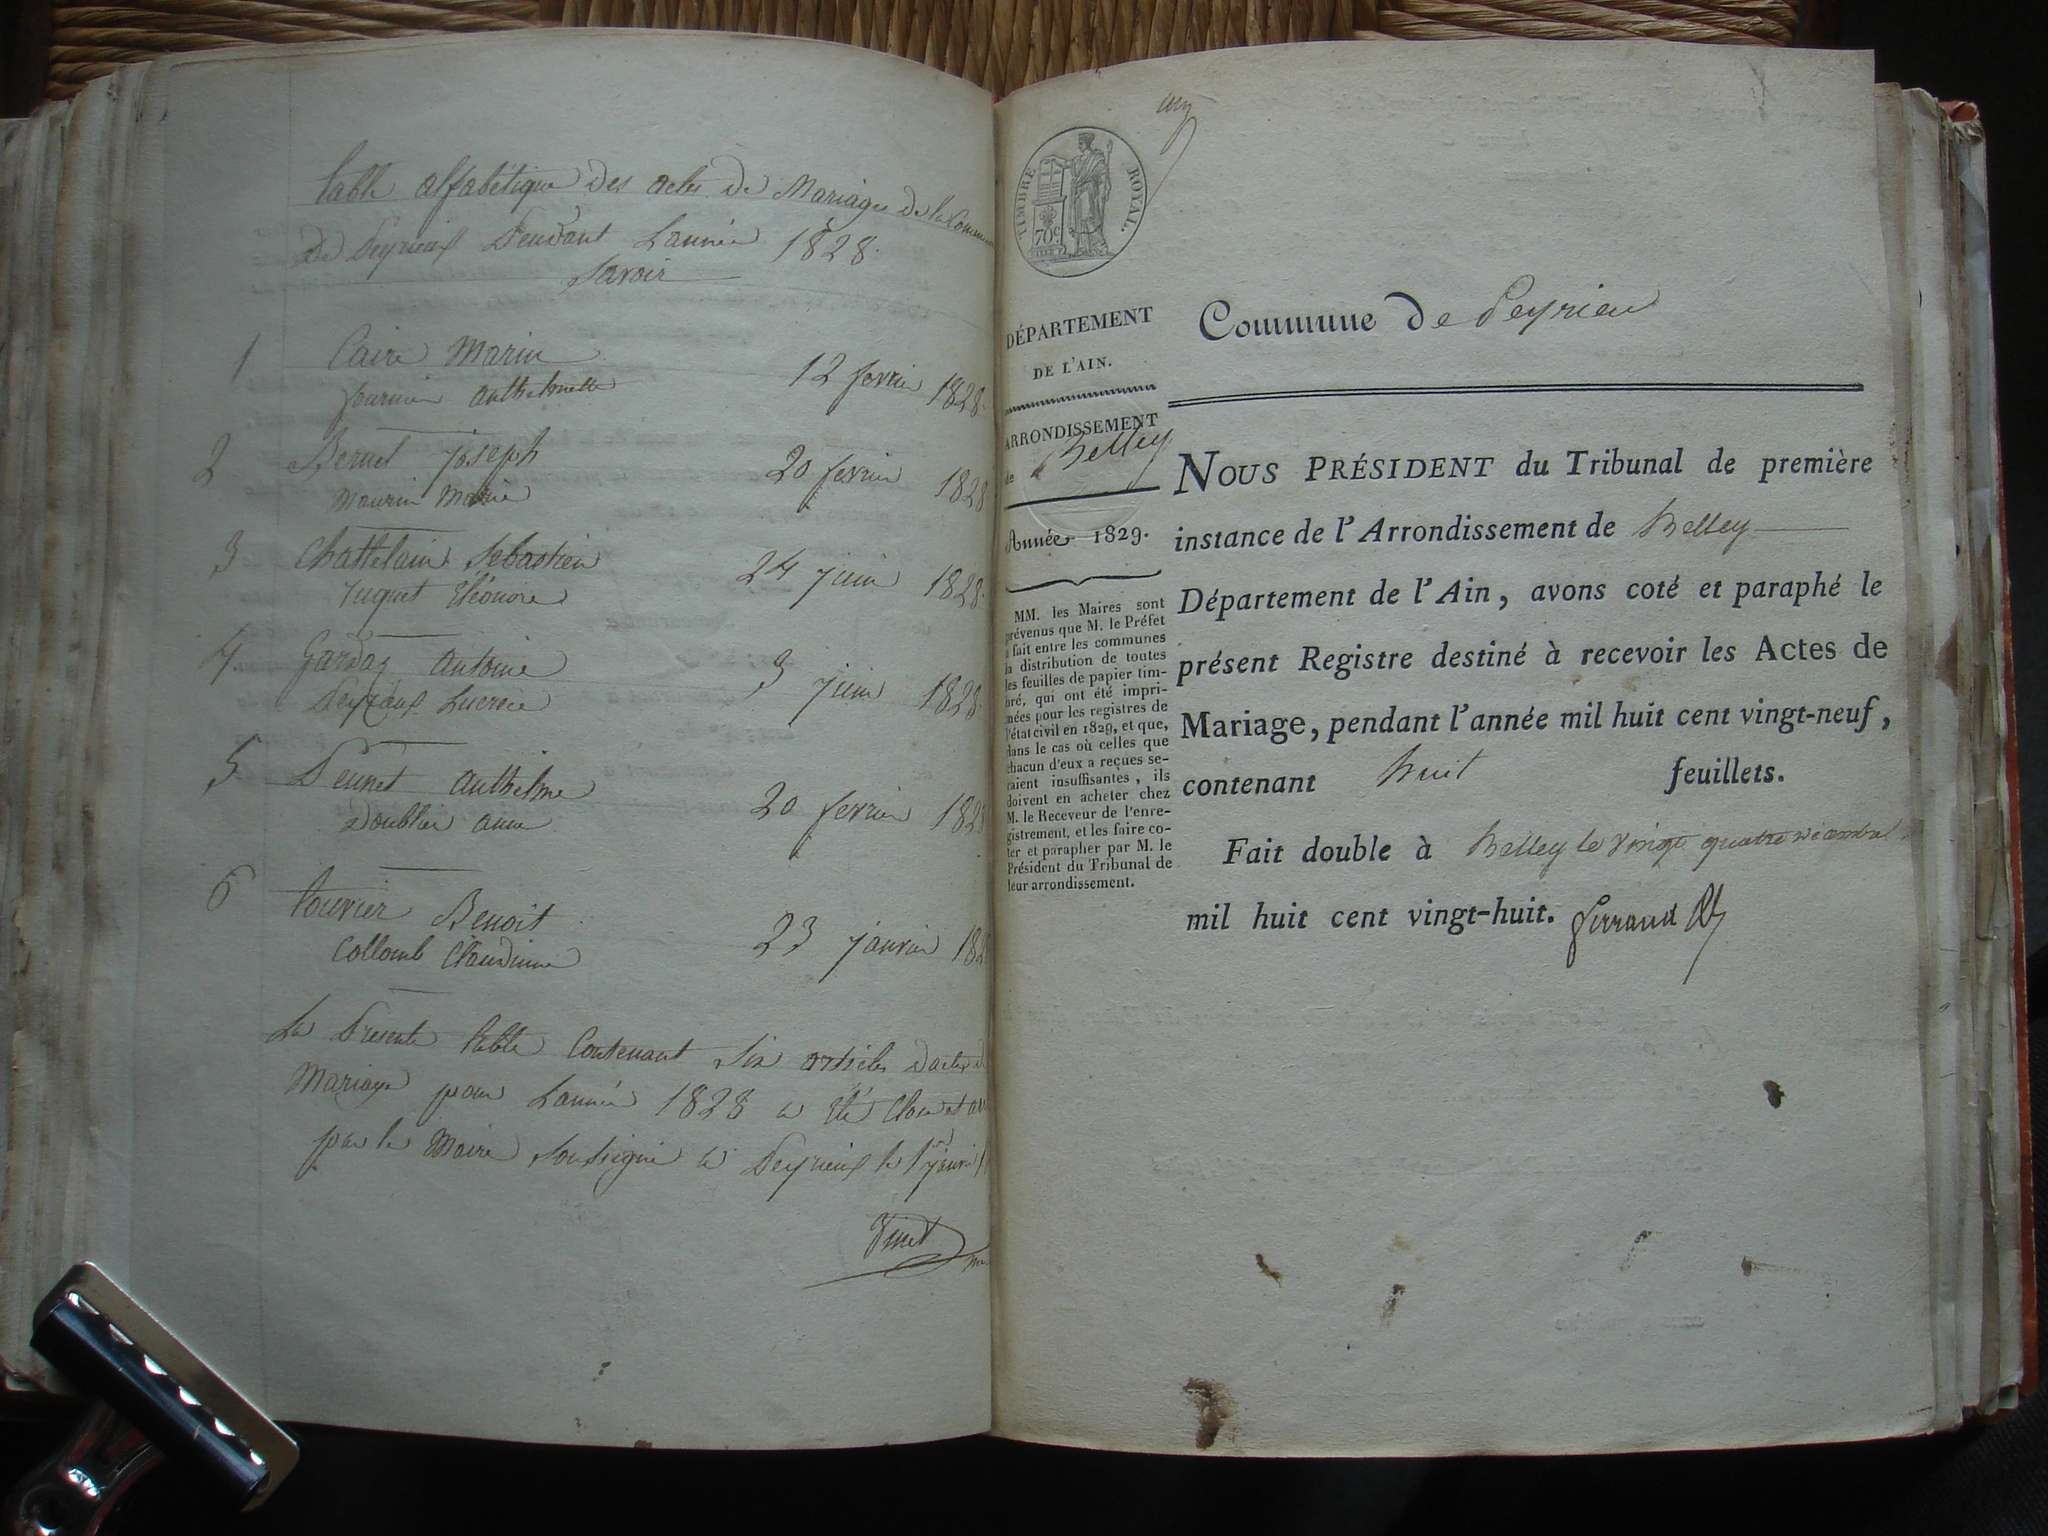 table alfabétique des actes de Mariages de la Commune
de Peyrieux Pendant L'année 1828.
Savoir
1 Caire Marin
fournier anthelmette 12 fevrier 1828.
2 Bernel joseph
Maurin Marie 20 fevrier 1828
3 Chattelain Sebastien
juguet Eléonore 24 juin 1828.
4 Gardaz antoine
Peyraux Lucrèce 3 juin 1828.
5 Peunet anthelme
Doublier anne 20 fevrier 182
6 touvier Benoit
Collomb Claudinne 23 janvier 182
La Presente table Contenant Six articles d'actes d
Mariage pour L'année 1828 a été Clow et arr
par le Maire Soussigné a Peyrieux le 1er janvi
TIMBRE ROYAL.
70 c
DÉPARTEMENT
DE L'AIN.
ARRONDISSEMENT
de Belley
Année 1829.
MM. les Maires sont
prévenus que M. le Préfet
a fait entre les communes
la distribution de toutes
les feuilles de papier tim-
bré, qui ont été impri-
mées pour les registres de
l'état civil en 1829, et que,
dans le cas où celles que
chacun d'eux a reçues se-
raient insuffisantes, ils
doivent en acheter chez
M. le Receveur de l'enre-
gistrement, et les faire co-
ter et parapher par M. le
Président du Tribunal de
leur arrondissement.
Commune de Peyrieu
NOUS PRÉSIDENT du Tribunal de première
instance de l'Arrondissement de Belley
Département de l'Ain, avons coté et paraphé le
présent Registre destiné à recevoir les Actes de
Mariage, pendant l'année mil huit cent vingt-neuf,
contenant huit feuillets.
Fait double à Belley le vingt quatre décembre
mil huit cent vingt-huit.